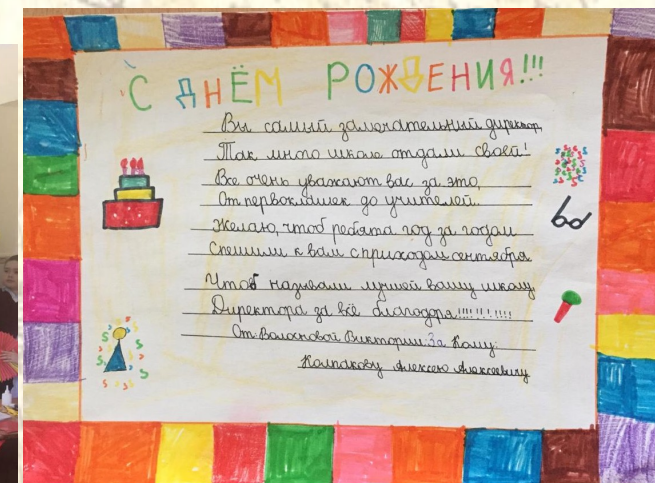 С ДНЁМ РОЖДЕНИЯ!!!
Вы самый замечательный директор,
Так много школе отдали своей!
Все очень уважают вас за это,
От первоклашек до учителей.
Желаю, чтоб ребята год за годом
Спешили к вам с приходом сентября
Чтоб называли лучшей вашу школу.
Директора за всё благодаря!!!!!!!!!!
От Волосковой Виктории 3а Кому:
Колпакову Алексею Алексеевичу